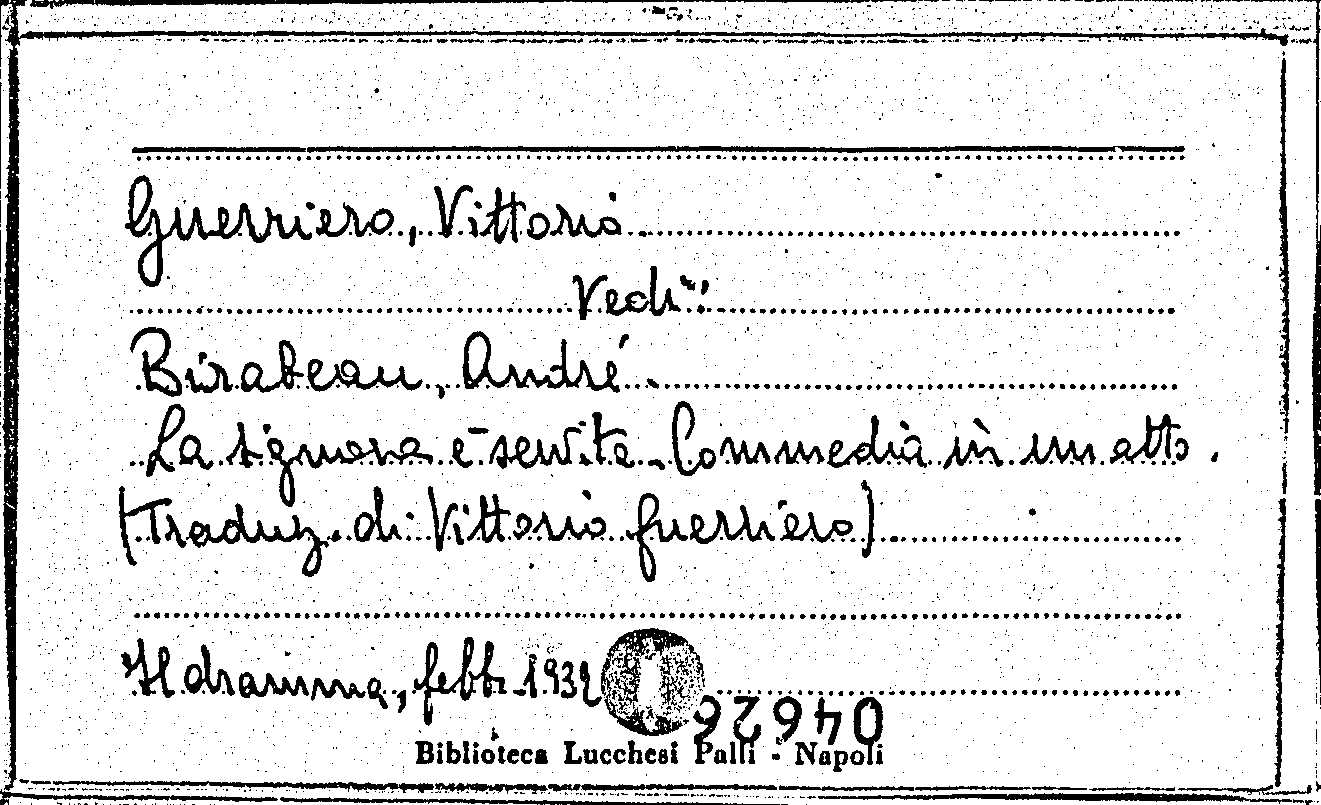 Guerriero, Vittorio.
Vedi:
Birabeau, André.
La signora è servita. Commedia in un atto.
(Traduz. di Vittorio Guerriero)
Il dramma, febb. 1932
046626
Biblioteca Lucchesi Palli - Napoli